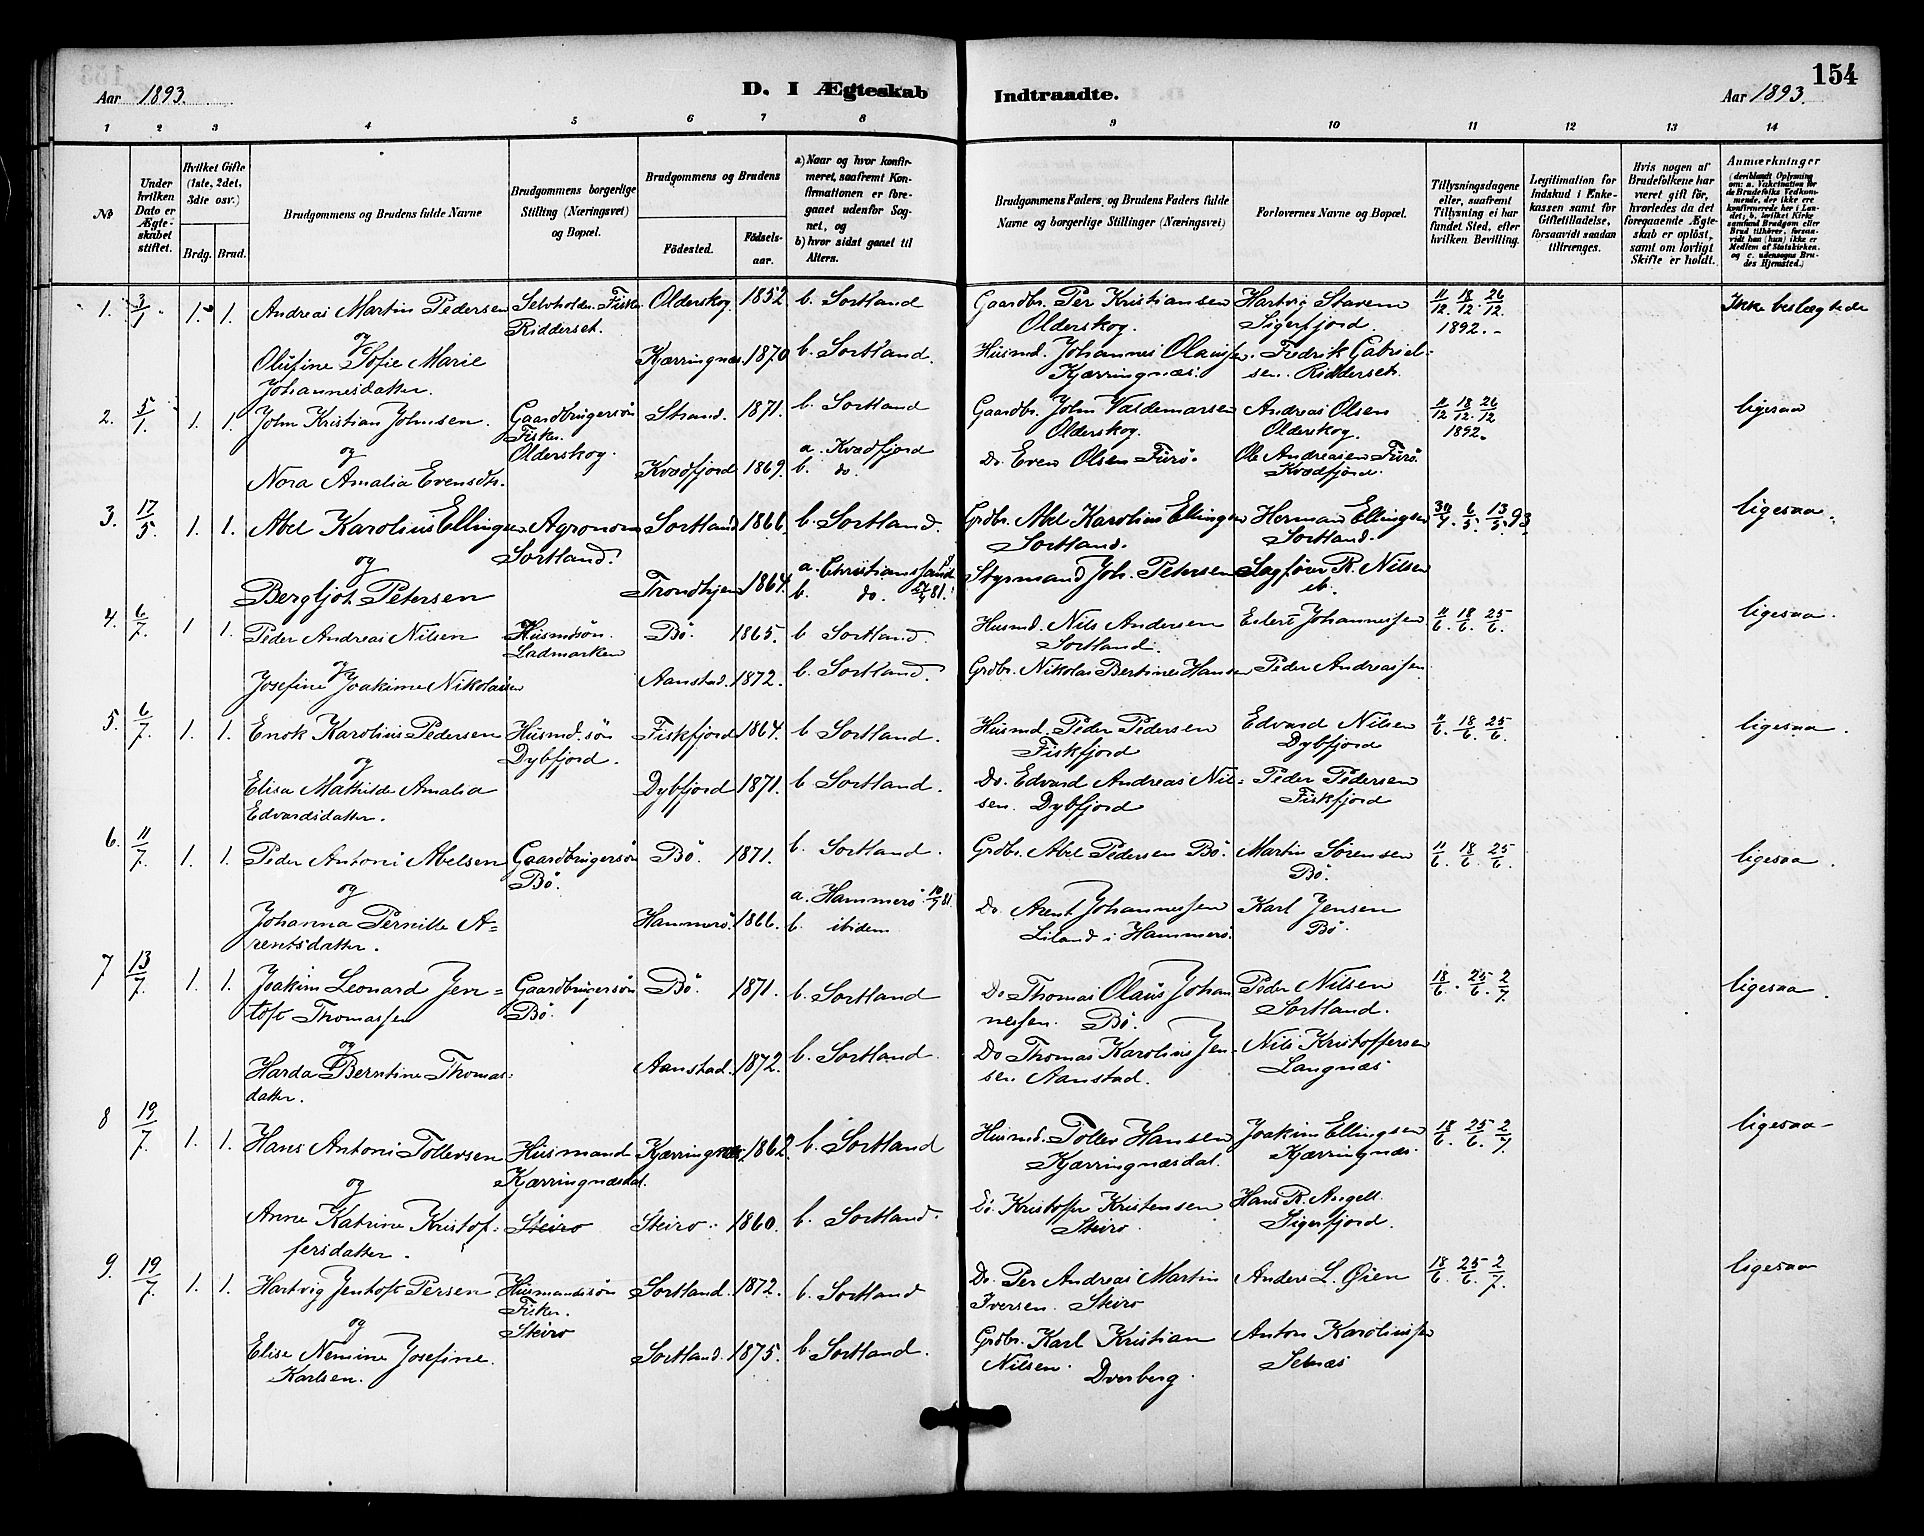 154
Aar 1893.
D. I Ægteskab Indtraadte.
Aar 1893.
1 2 3 4 5 6 7 8 9 10 11 12 13 14
No
Under hvilken Dato er Ægteskabet stiftet.
Hvilket Gifte (1ste, 2det, 3die osv.)
Brdg. Brud.
Brudgommens og Brudens fulde Navne
Brudgommens borgerlige Stilling (Næringsvei) og Bopæl.
Brudgommens og Brudens
Fødested.
Fødselsaar.
a) Naar og hvor konfirmeret, saafremt Konfirmationen er foregaaet udenfor Sognet, og
b) hvor sidst gaaet til Alters.
Brudgommens Faders og Brudens Faders fulde Navne og borgerlige Stillinger (Næringsvei)
Forlovernes Navne og Bopæl.
Tillysningsdagene eller, saafremt Tillysning ei har fundet Sted, efter hvilken Bevilling.
Legitimation for Indskud i Enkekassen samt for Giftetilladelse, forsaavidt saadan tiltrænges.
Hvis nogen af Brudefolkene har været gift før, hvorledes da det foregaaende Ægteskab er opløst, samt om lovligt Skifte er holdt.
Anmærkninger (deriblandt Oplysning om: a. Vakcination for de Brudefolks Vedkommende, der ikke ere konfirmerede her i Landet; b. hvilket Kirkesamfund Brudgom eller Brud tilhører, forsaavidt han (hun) ikke er Medlem af Statskirken, og c. udensogns Brudes Hjemsted.)
1. 3/1 1. 1. Andreas Martin Pedersen Selvholder. Fisker Olderskog. 1852 b. Sortland Gaardbr. Per Kristiansen Hartvig Stavem 11/12. 18/12. 26/12. Ikke beslegtede
Ridderset. Olderskog. Sigerfjord. 1892.
og
Olufine Sofie Marie Kjærringnæs. 1870 b. Sortland. Husmd. Johannes Olaussen. Fredrik Gabriel-
Johannesdatter. Kjærringnæs. sen. Ridderset.
2. 5/1. 1. 1. John Kristian Johnsen. Gaardbrugersøn Strand. 1871. b. Sortland Gaardbr. John Valdemarsen Andreas Olsen 11/12. 18/12. 26/12 ligesaa
Fisker. Olderskog. Olderskog. Olderskog. 1892.
og
Nora Amalia Evensdtr. Kvædfjord 1869. a. Kvædfjord b. do. Do. Even Olsen Furø. Ole Andreasen Furø.
Kvædfjord.
3. 17/5. 1. 1. Abel Karolius Ellingsen Agronom Sortland 1866. b. Sortland. Grdbr. Abel Karolius Ellingsen Herman Ellingsen 30/4. 6/5. 13/5. 93. ligesaa.
Sortland. Sortland. Sortland.
og
Bergljot Petersen Trondhjem 1864. a. Christianssund 81. b. do. Styrmand Joh. Petersen Sagfører R. Nilsen
ib.
4. 6/7. 1 1. Peder Andreas Nilsen Husmdsøn. Bø. 1865. b Sortland. Husmd. Nils Andersen Eilert Johannessen 11/6. 18/6. 25/6. ligesaa.
Ladmarken Sortland.
og
Josefine Joakime Nikolaisen Aanstad. 1872. b. Sortland. Grdbr. Nikolas Bertines Hansen Peder Andreassen
5. 6/7. 1. 1. Enok Karolius Pedersen Husmd. søn Fiskfjord 1864. b Sortland. Husmd. Peder Pedersen Edvard Nilsen 11/6. 18/6. 25/6. ligesaa.
Dybfjord. Fiskfjord Dybfjord
og
Elisa Mathilde Amalia Dybfjord 1871. b Sortland. Do. Edvard Andreas Nil- Peder Pedersen
Edvardsdatter. sen. Dybfjord Fiskfjord
6. 11/7. 1. 1. Peder Antoni Abelsen Gaardbrugersøn Bø. 1871. b. Sortland. Grdbr. Abel Pedersen Bø. Martin Sørensen 11/6. 18/6. 25/6. ligesaa.
Bø. Bø.
og
Johanna Pernille A- Hammerø. 1866. a. Hammerø. 81 b. ibidem Do. Arent Johannessen Karl Jensen
rentsdatter. Liland i Hammerø. Bø.
7 13/7. 1. 1. Joakim Leonard Jen- Gaardbrugersøn Bø. 1871. b. Sortland Do Thomas Olaus Johan Peder Nilsen 18/6. 25/6. 2/7. ligesaa.
toft Thomassen Bø. nessen. Bø. Sortland.
og
Harda Berntine Thomas- Aanstad. 1872. b. Sortland. Do Thomas Karolius Jen- Nils Kristoffersen
datter. sen. Aanstad. Langnæs
8 19/7. 1. 1. Hans Antoni Tollevsen Husmand Kjærringnæs. 1862. b. Sortland Husmd. Tollev Hansen Joakim Ellingsen 18/6. 25/6. 2/7. ligesaa
Kjærringnæsdal. Kjærringnæsdal. Kjærringnæs.
og
Anne Katrine Kristof- Steiro Steiro. 1860. b. Sortland. Do. Kristofer Kristensen Hans R. Angell
fersdatter. Steiro. Sigerfjord.
9. 19/7. 1. 1. Hartvig Jentoft Persen Husmandssøn Sortland. 1872. b. Sortland Do. Per Andreas Martin Anders L. Øien 18/6. 25/6. 2/7. ligesaa
Fisker. Steiro Iversen. Steiro
og
Elise Nemine Josefine. Sortland. 1875. b. Sortland. Grdbr. Karl Kristian Anton Karoliussen
Karlsen. Nilsen. Dverberg. Selnæs